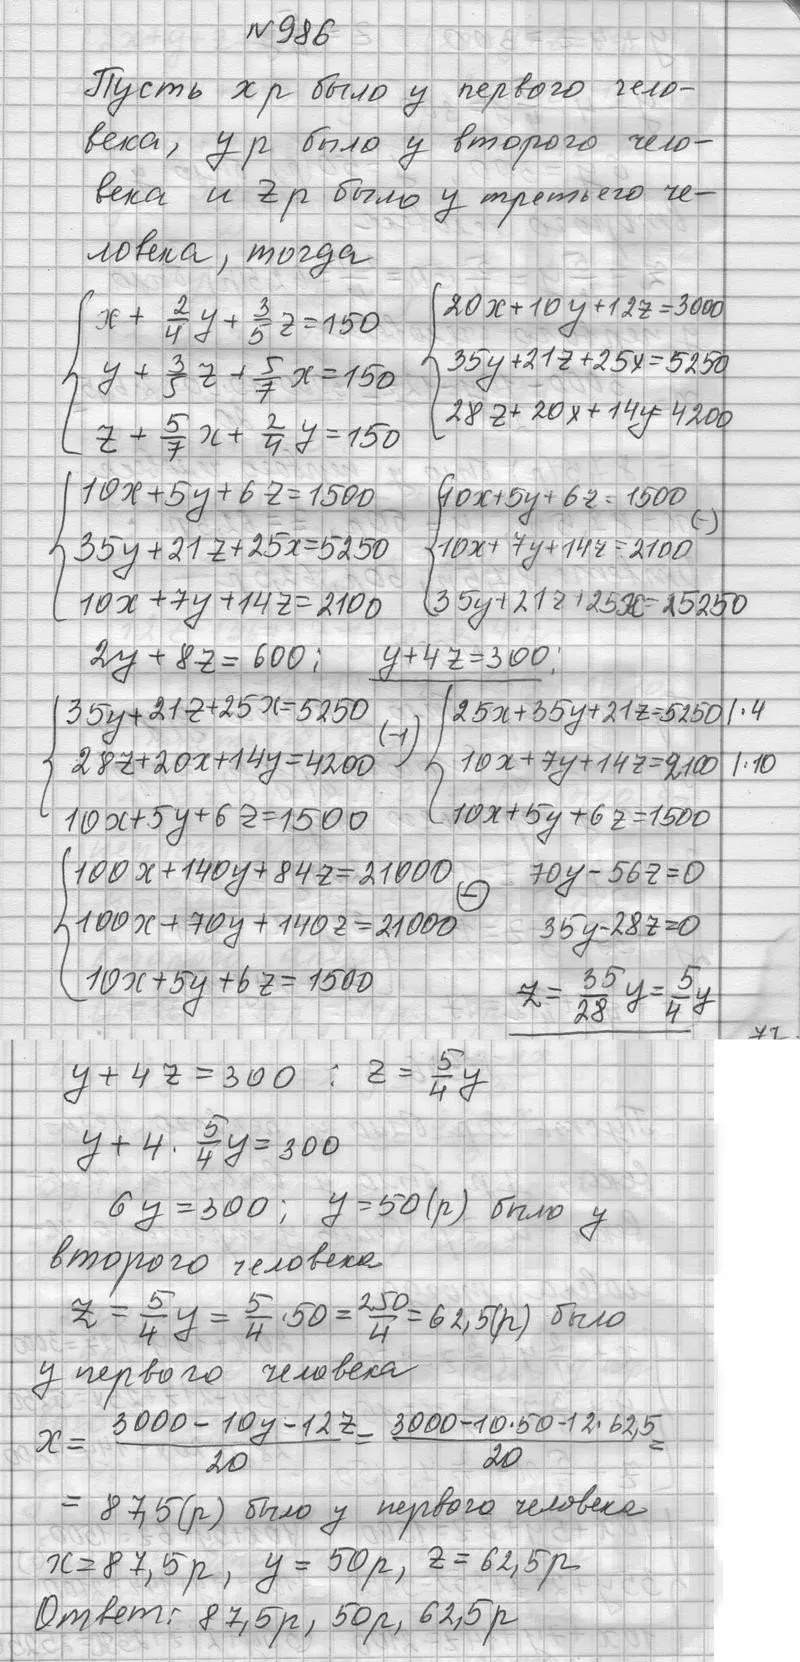 №986
Пусть x р было у первого чело-
века, y р было у второго чело-
века и z р было у третьего че-
ловека, тогда
x + 2/4 y + 3/5 z = 150
y + 3/5 z + 5/7 x = 150
z + 5/7 x + 2/4 y = 150
20x + 10y + 12z = 3000
35y + 21z + 25x = 5250
28z + 20x + 14y = 4200
10x + 5y + 6z = 1500
35y + 21z + 25x = 5250
10x + 7y + 14z = 2100
10x + 5y + 6z = 1500
(-)
10x + 7y + 14z = 2100
35y + 21z + 25x = 25250
2y + 8z = 600; y + 4z = 300;
35y + 21z + 25x = 5250
28z + 20x + 14y = 4200 (-1)
10x + 5y + 6z = 1500
25x + 35y + 21z = 5250 |·4
10x + 7y + 14z = 2100 |·10
10x + 5y + 6z = 1500
100x + 140y + 84z = 21000
(-)
100x + 70y + 140z = 21000
10x + 5y + 6z = 1500
70y - 56z = 0
35y - 28z = 0
z = 35/28 y = 5/4 y
y + 4z = 300 : z = 5/4 y
y + 4 · 5/4 y = 300
6y = 300; y = 50(р) было у
второго человека
z = 5/4 y = 5/4 · 50 = 250/4 = 62,5(р) было
у первого человека
x = (3000 - 10y - 12z)/20 = (3000 - 10·50 - 12·62,5)/20 =
= 87,5(р) было у первого человека
x = 87,5р, y = 50р, z = 62,5р
Ответ: 87,5р, 50р, 62,5р